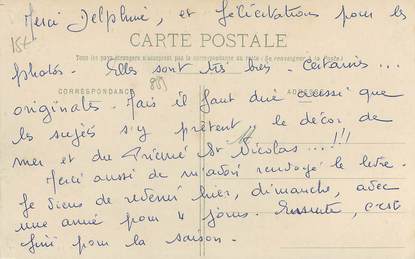 Merci Delphine, et félicitations pour les
15€
CARTE POSTALE
Tous les pays étrangers n'acceptent pas la correspondance au recto (Se renseigner à la Poste)
photos. Elles sont très bien. Certaines...
CORRESPONDANCE
889
ADRESSE
originales. Mais il faut dire aussi que
les sujets s'y prêtent le décor de
mer et du St Nicolas...!!!
Merci aussi de m'avoir renvoyé la lettre.
Je viens de revenir hier, dimanche, avec
une amie pour 4 jours. Ensuite, c'est
fini pour la saison.